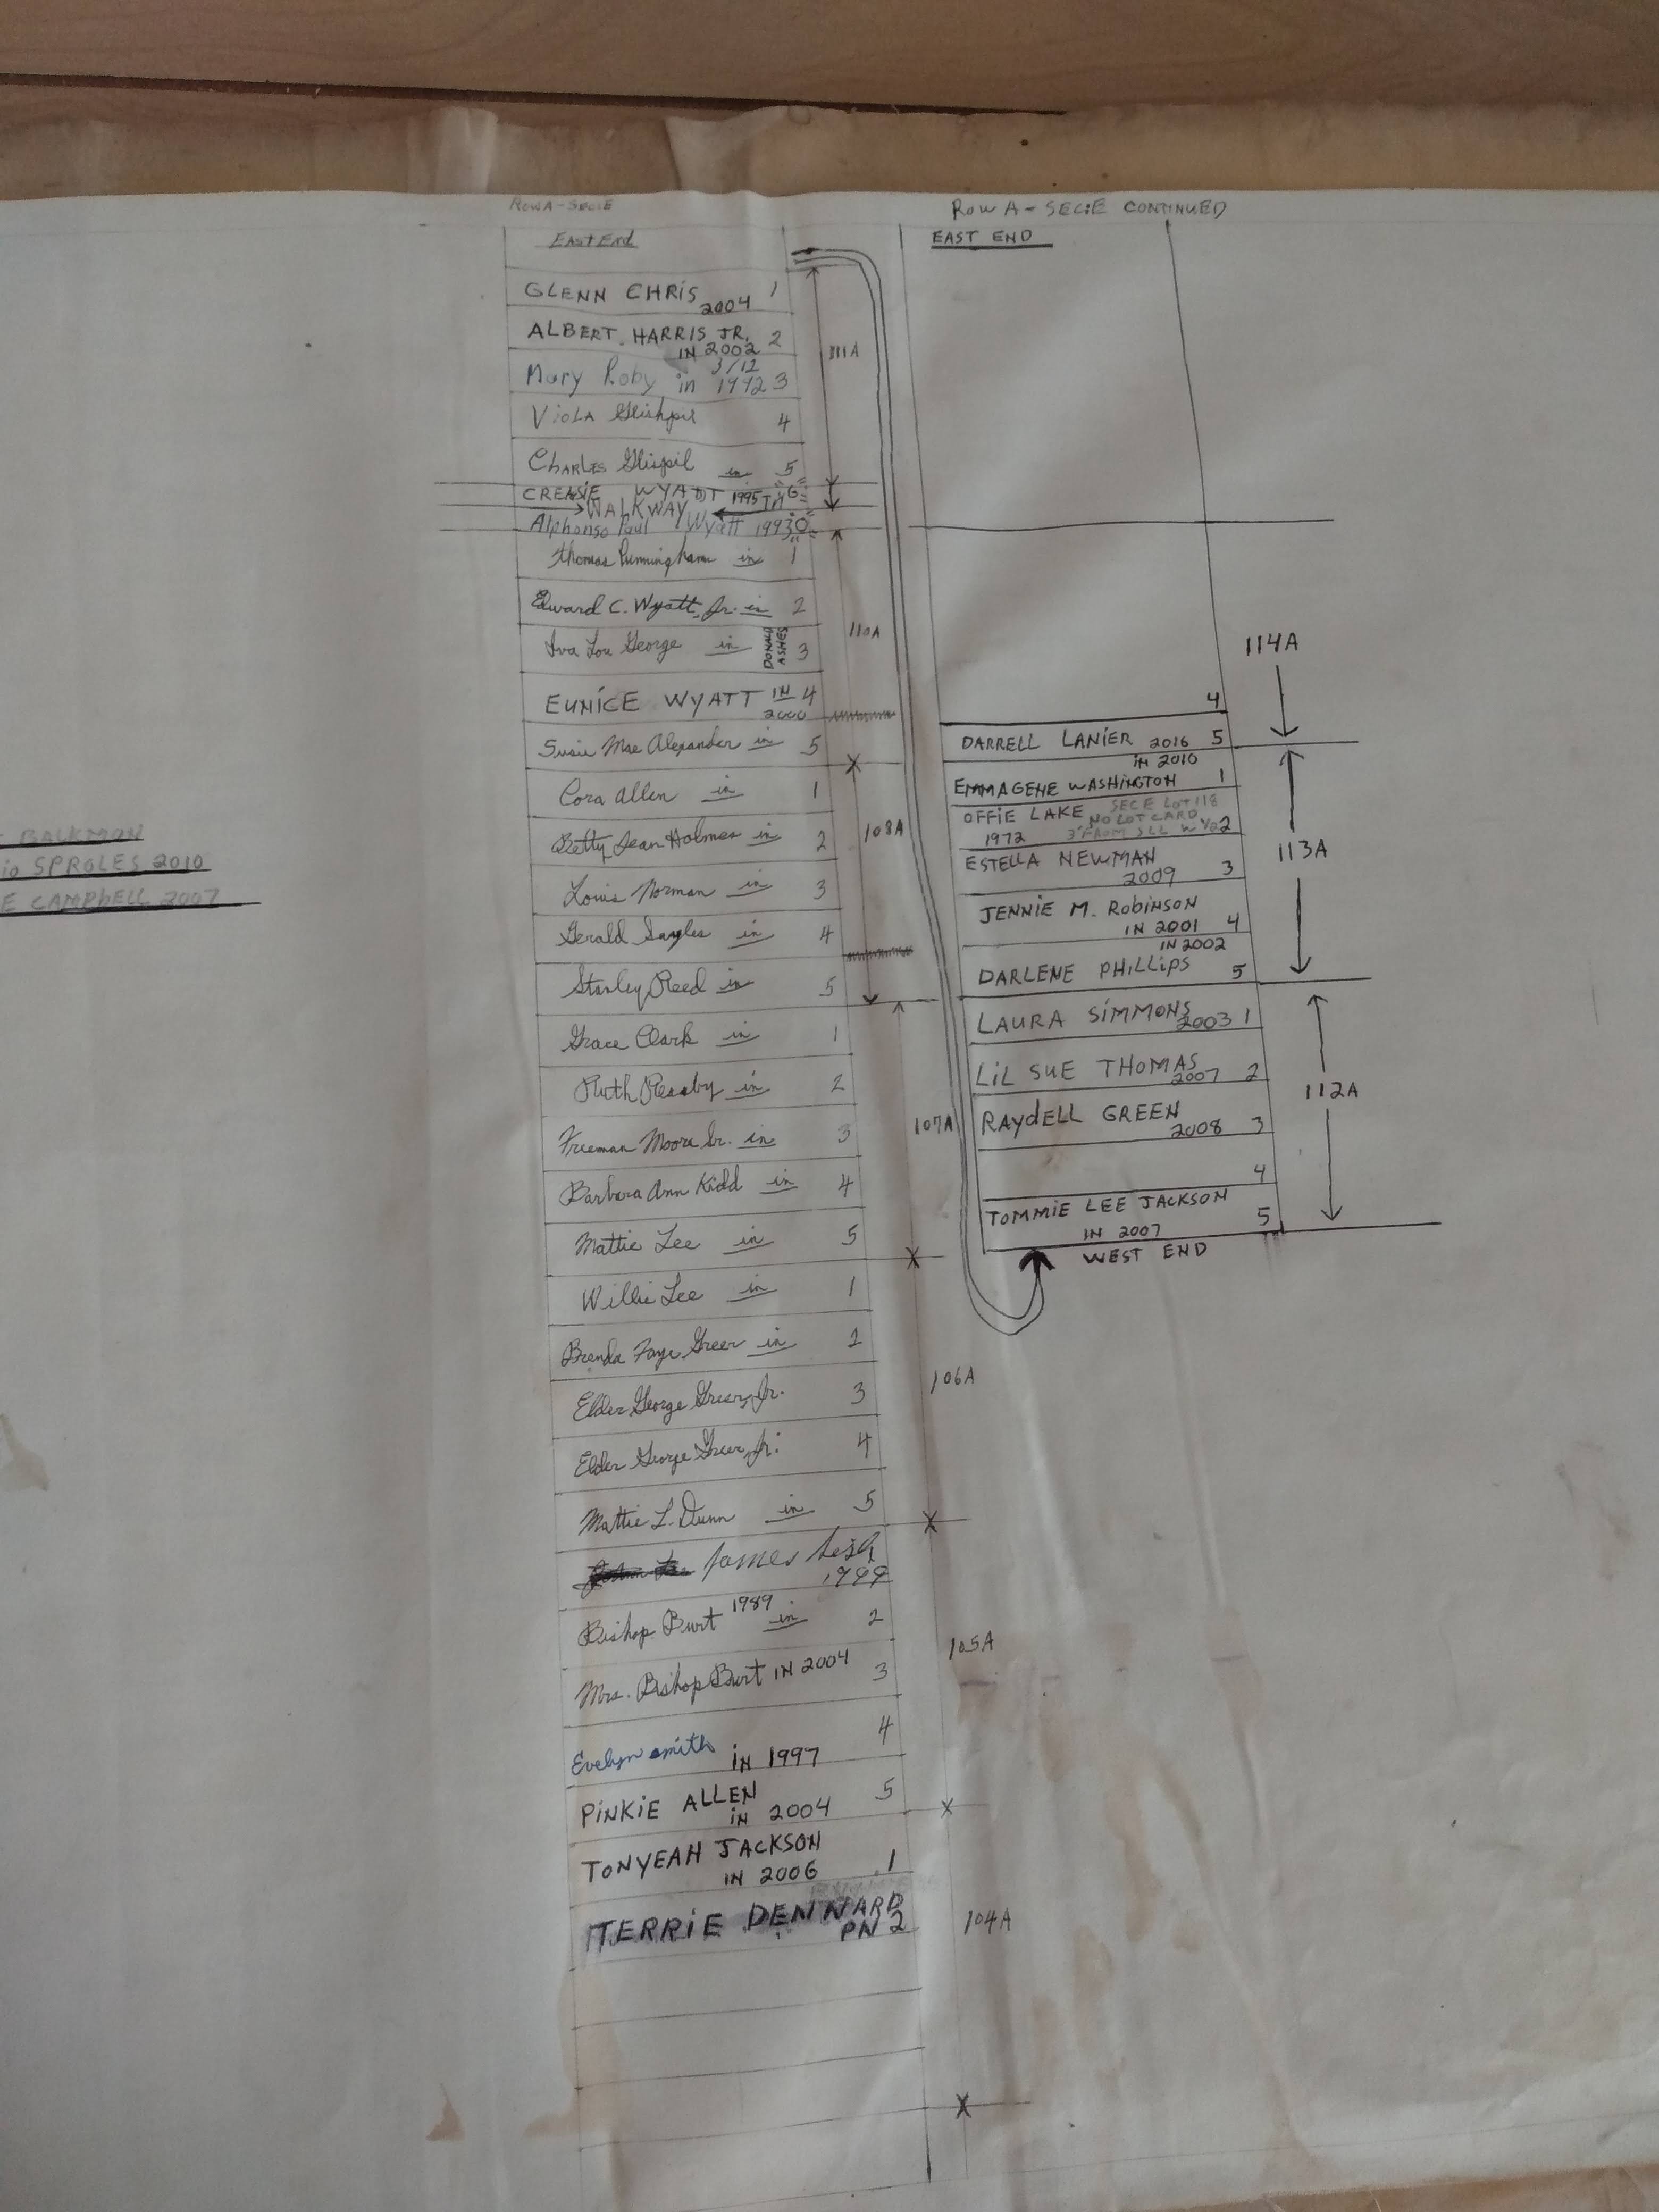 BALKMON
SPROLES 2010
E CAMPBELL 2007
ROW A - SEC:E
East End
GLENN CHRIS 2004 1
ALBERT HARRIS JR. 2
IN 2002
3/12
Mary Roby in 1992 3
VIOLA 4
CHARLES in 5
CREASIE WYATT 1995
WALKWAY
Alphonso Paul Wyatt 1993 0
111A
Thomas Cunningham in 1
Edward C. Wyatt, Jr. in 2
Iva Lou George in DONALD ASHES 3
EUNICE WYATT IN 4
2000
Susie Mae Alexander in 5
110A
Cora Allen in 1
Betty Jean Holmes in 2
Louis Norman in 3
Gerald Sayles in 4
Stanley Reed in 5
108A
Grace Clark in 1
Ruth in 2
Freeman Moore Sr. in 3
Barbara Ann Kidd in 4
Mattie Lee in 5
107A
Willie Lee in 1
Brenda Faye Greer in 2
Elder George Greer, Jr. 3
Elder George Greer, Jr. 4
Mattie L. Dunn in 5
106A
James
1999
Bishop Burt 1989 in 2
Mrs. Bishop Burt IN 2004 3
4
Evelyn Smith IN 1997
PINKIE ALLEN 5
IN 2004
105A
TONYEAH JACKSON
IN 2006 1
TERRIE DENNARD
PN 2
104A
ROW A - SEC:E CONTINUED
EAST END
4
DARRELL LANIER 2016 5
114A
IN 2010
EMMAGENE WASHINGTON 1
OFFIE LAKE SEC E LOT 118
NO LOT CARD
1972 3' FROM 2
ESTELLA NEWMAN
2009 3
JENNIE M. ROBINSON
IN 2001 4
IN 2002
DARLENE PHILLIPS 5
113A
LAURA SIMMONS
2003 1
LIL SUE THOMAS
2007 2
RAYDELL GREEN
2008 3
4
TOMMIE LEE JACKSON
IN 2007 5
112A
WEST END